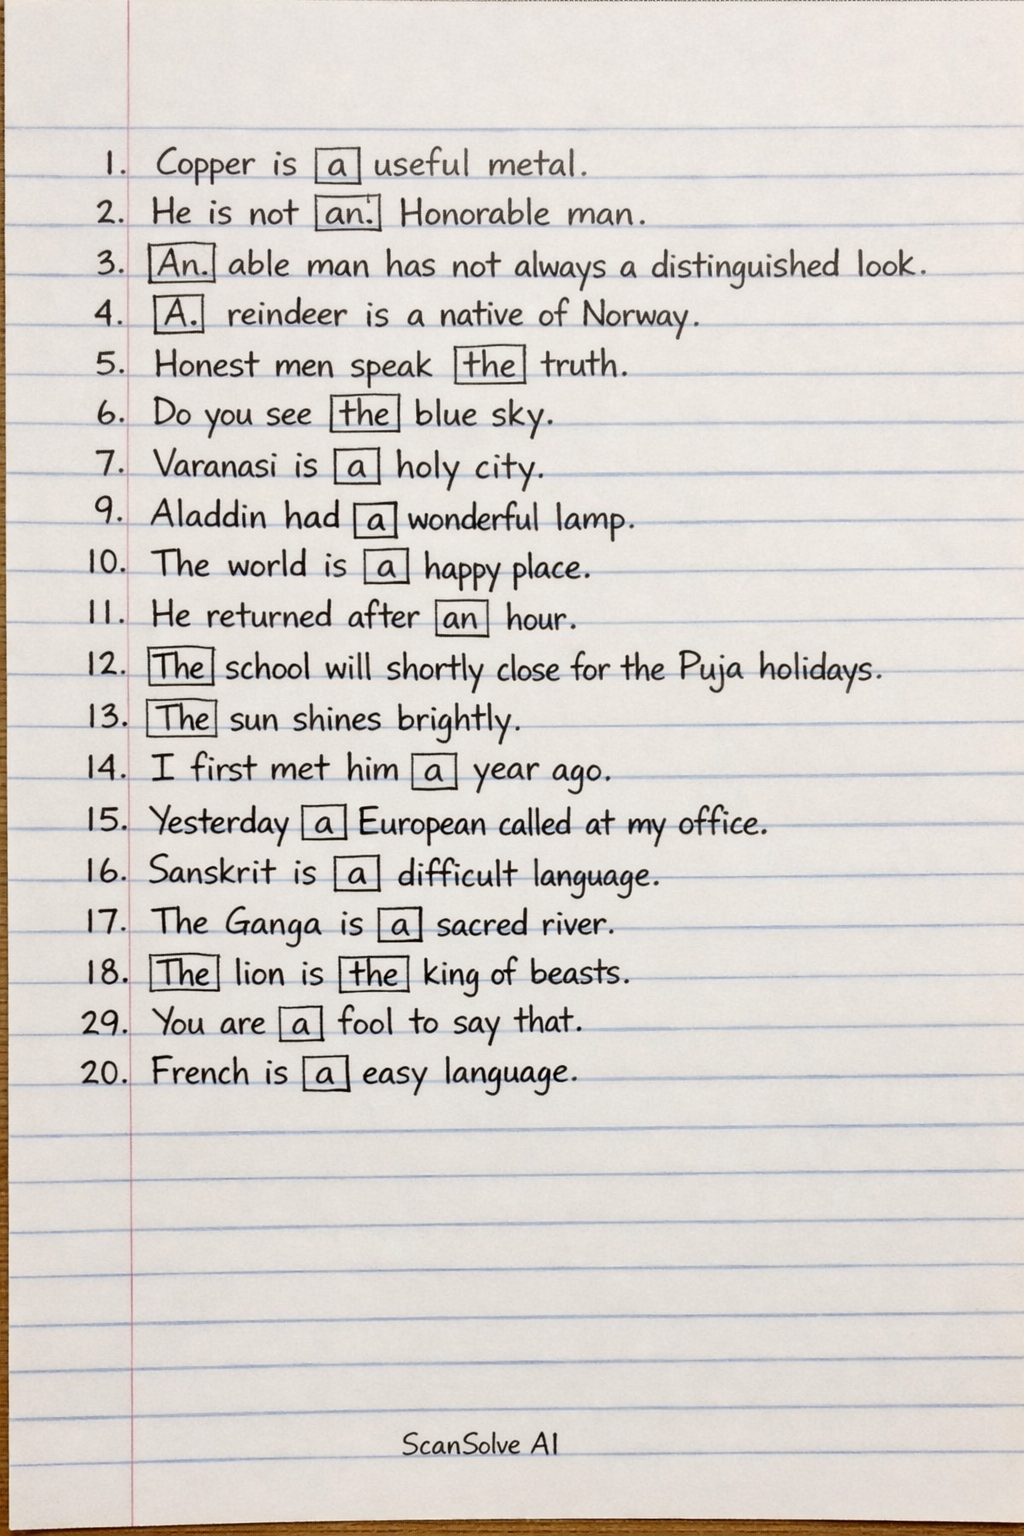 1. Copper is a useful metal.
2. He is not an. Honorable man.
3. An. able man has not always a distinguished look.
4. A. reindeer is a native of Norway.
5. Honest men speak the truth.
6. Do you see the blue sky.
7. Varanasi is a holy city.
9. Aladdin had a wonderful lamp.
10. The world is a happy place.
11. He returned after an hour.
12. The school will shortly close for the Puja holidays.
13. The sun shines brightly.
14. I first met him a year ago.
15. Yesterday a European called at my office.
16. Sanskrit is a difficult language.
17. The Ganga is a sacred river.
18. The lion is the king of beasts.
29. You are a fool to say that.
20. French is a easy language.
ScanSolve AI